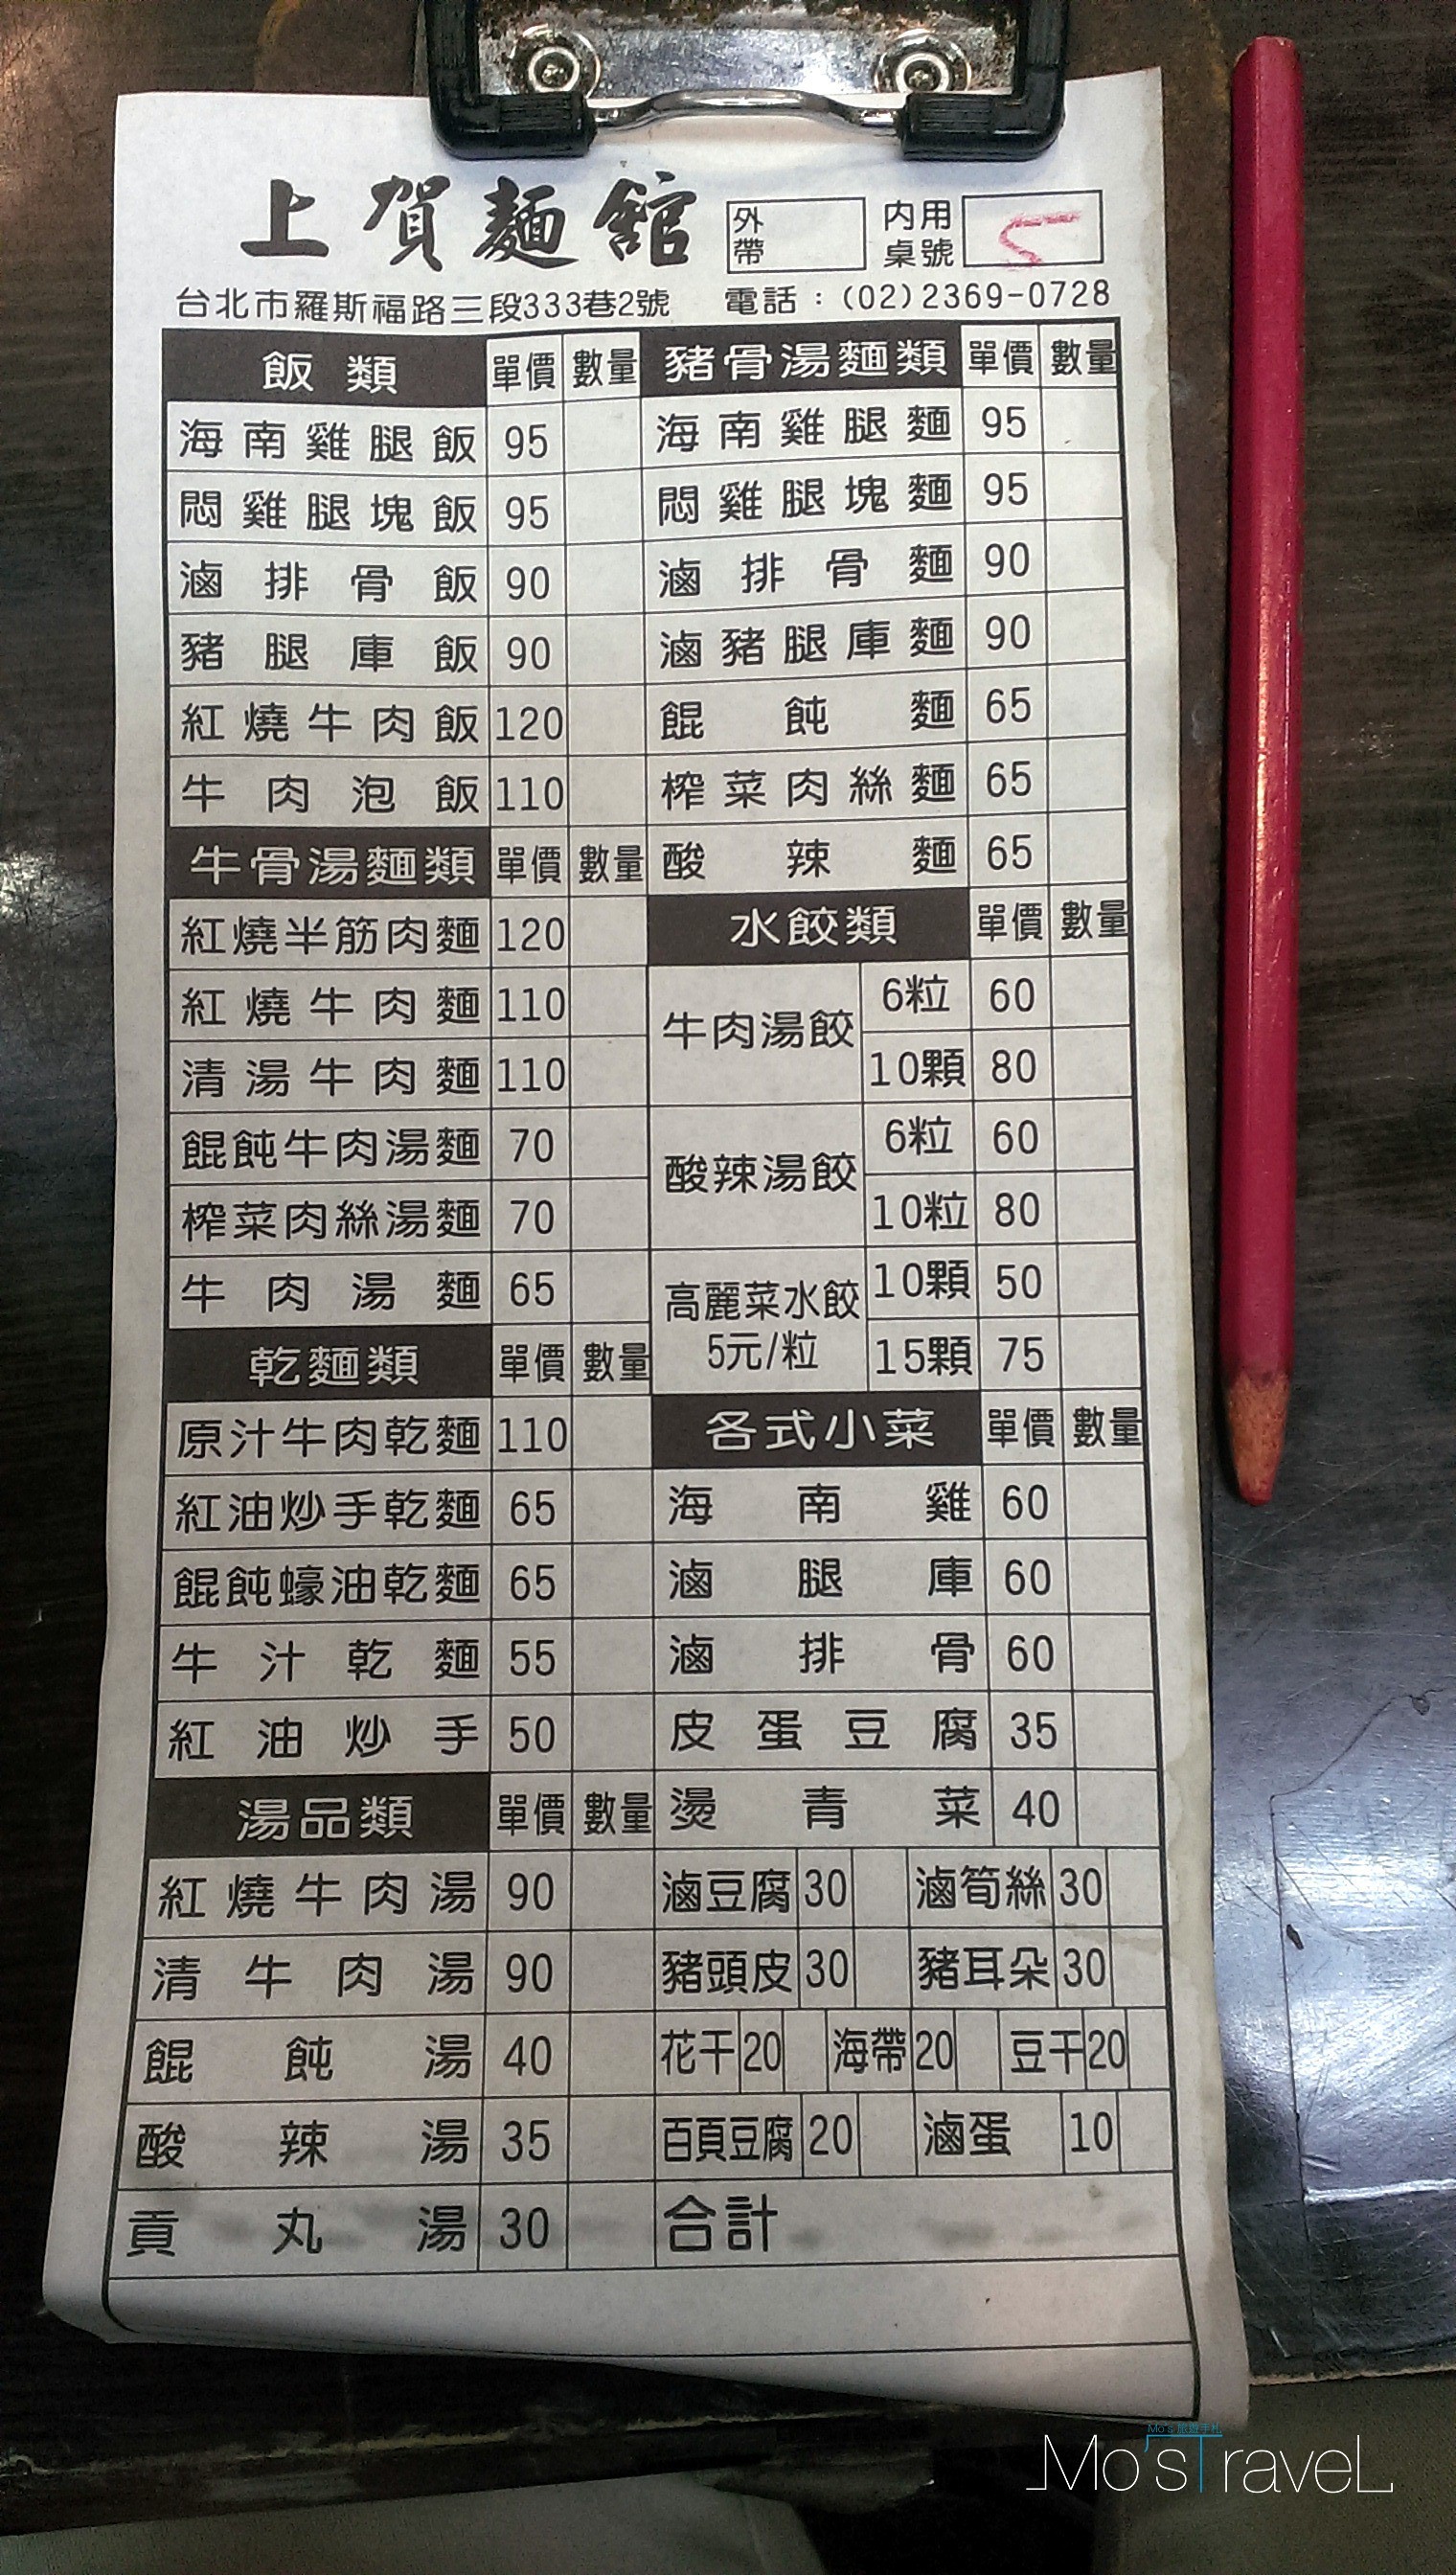 上賀麵舘
外帶
內用桌號 5
台北市羅斯福路三段333巷2號 電話：(02)2369-0728
飯類 單價 數量
海南雞腿飯 95
悶雞腿塊飯 95
滷排骨飯 90
豬腿庫飯 90
紅燒牛肉飯 120
牛肉泡飯 110
牛骨湯麵類 單價 數量
紅燒半筋肉麵 120
紅燒牛肉麵 110
清湯牛肉麵 110
餛飩牛肉湯麵 70
榨菜肉絲湯麵 70
牛肉湯麵 65
乾麵類 單價 數量
原汁牛肉乾麵 110
紅油炒手乾麵 65
餛飩蠔油乾麵 65
牛汁乾麵 55
紅油炒手 50
湯品類 單價 數量
紅燒牛肉湯 90
清牛肉湯 90
餛飩湯 40
酸辣湯 35
貢丸湯 30
豬骨湯麵類 單價 數量
海南雞腿麵 95
悶雞腿塊麵 95
滷排骨麵 90
滷豬腿庫麵 90
餛飩麵 65
榨菜肉絲麵 65
酸辣麵 65
水餃類 單價 數量
牛肉湯餃 6粒 60
10顆 80
酸辣湯餃 6粒 60
10粒 80
高麗菜水餃 10顆 50
5元/粒 15顆 75
各式小菜 單價 數量
海南雞 60
滷腿庫 60
滷排骨 60
皮蛋豆腐 35
燙青菜 40
滷豆腐 30 滷筍絲 30
豬頭皮 30 豬耳朵 30
花干 20 海帶 20 豆干 20
百頁豆腐 20 滷蛋 10
合計
Mo's 旅遊手札
Mo'sTraveL